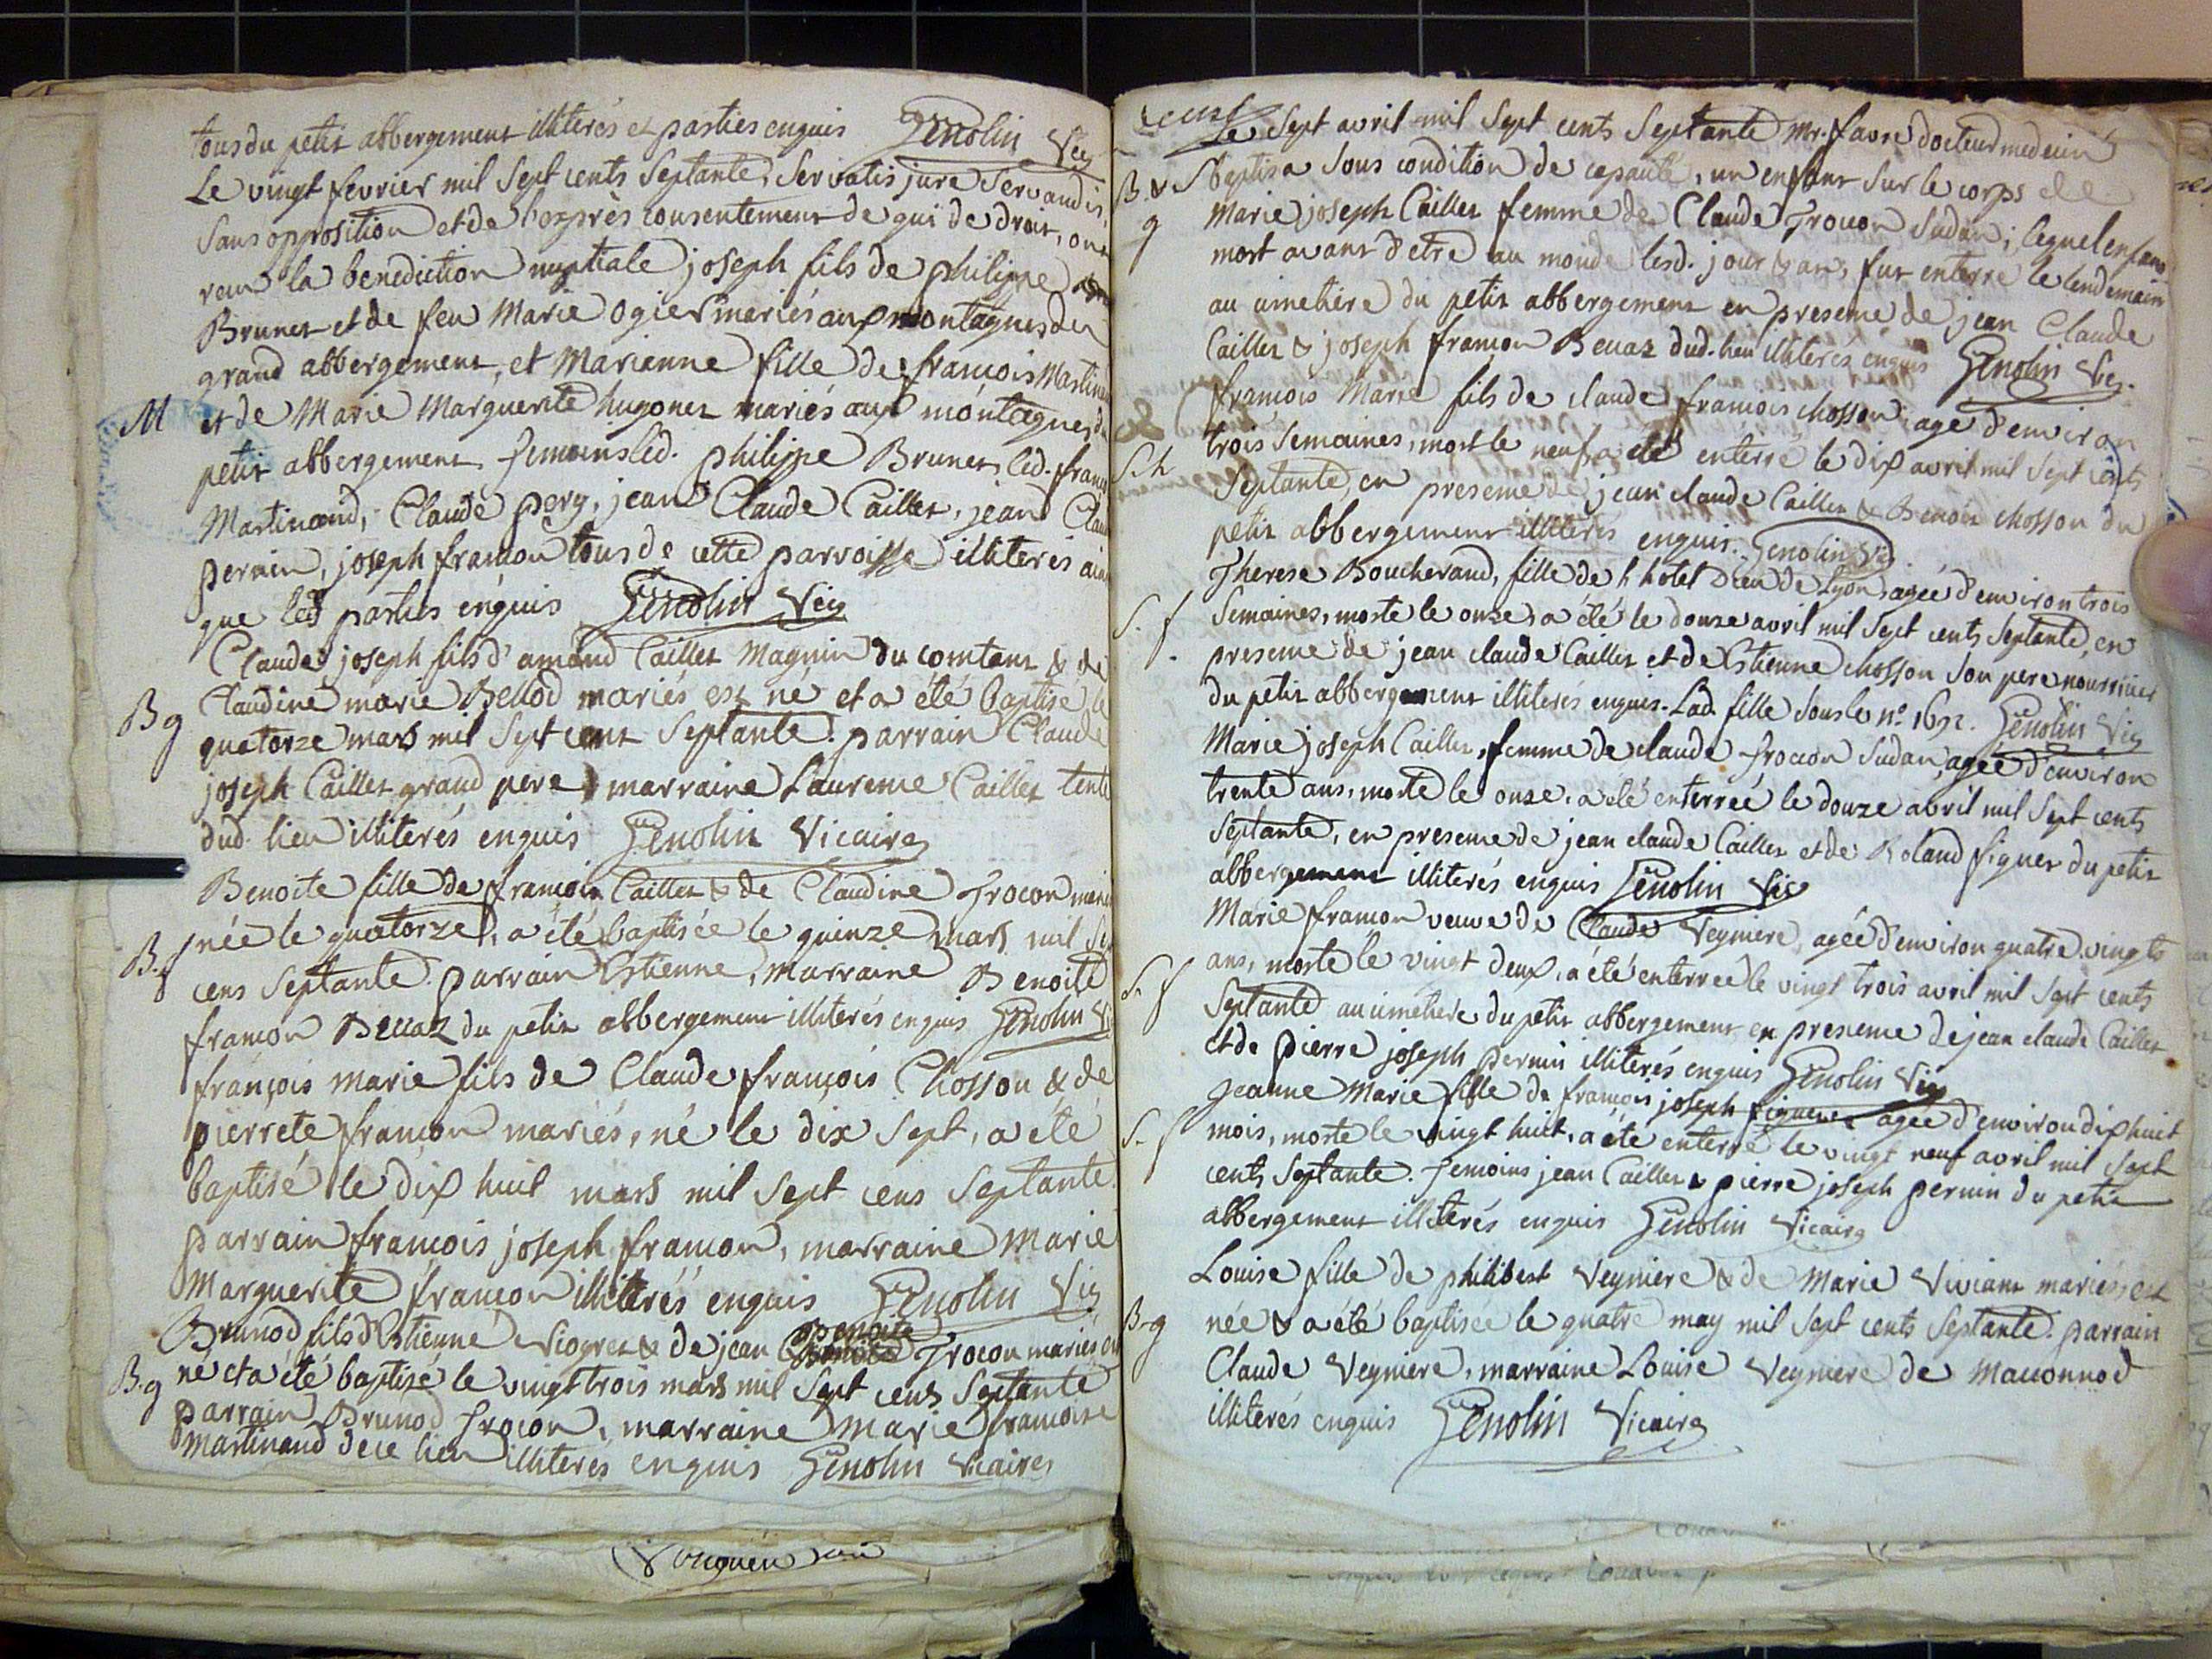 tous du petit abbergement illiterés et parties enquis Genolin Vic
Le vingt fevrier mil sept cents septante, servatis jure servandis,
sans opposition et de l'exprès consentement de qui de droit, ont
recu la benediction nuptiale joseph fils de philippe
Brunet et de feu Marie Ogier mariés aux montagnes du
grand abbergement, et Marianne fille de françois Martinan
M et de Marie Marguerite hugonet mariés aux montagnes du
petit abbergement, temoins led. philippe Brunet, led. franc
Martinand, Claude pery, jean Claude Caillet, jean Clau
pernin, joseph françon tous de cette parroisse illiterés ain
que les parties enquis Genolin Vic
Claude joseph fils d'amand Caillet Magnin du comtant & de
Bg Claudine marie Bellod mariés est né et a été baptisé le
quatorze mars mil sept cent septante. parrain Claude
joseph Caillet grand pere marraine Laurence Caillet tente
dud. lieu illiterés enquis Genolin Vicaire
Benoite fille de françois Caillet & de Claudine Trocon mari
B.f née le quatorze, a été baptisée le quinze mars mil se
cens septante. parrain Estienne, marraine Benoite
françon Beuaz du petit abbergement illiterés enquis Genolin Vi
françois marie fils de Claude françois Chosson & de
pierrete françon mariés, né le dix sept, a été
baptisé le dix huit mars mil sept cens septante.
parrain françois joseph françon, marraine Marie
Marguerite françon illiterés enquis Genolin Vic
Benoite
Brunod fils d'Estienne Viogret & de jean Trocon mariés
B.g né et a été baptisé le vingt trois mars mil sept cens septante
parrain Brunod Trocon, marraine Marie francoise
Martinand de ce lieu illiterés enquis Genolin Vicaire
Le sept avril mil sept cents septante Mr. favre docteur medecin
B. & S baptisa sous condition de capacité, un enfant sur le corps de
g Marie joseph Caillet femme de Claude Trocon Sudan; lequel enfant
mort avant d'etre au monde lesd. jour & an, fut enterré le lendemain
au cimetière du petit abbergement en presence de jean Claude
Caillet & joseph françon Beuaz dud. lieu illiterés enquis Genolin Vic.
françois Marie fils de claude françois chosson agé d'environ
S.h trois semaines, mort le neuf a été enterré le dix avril mil sept cents
septante, en presence de jean claude Caillet & Benoit chosson du
petit abbergement illiterés enquis. Genolin Vic
Therese Boucherand, fille de l'hôtel Dieu de Lyon, agée d'environ trois
S. f semaines, morte le onze, a été le douze avril mil sept cents septante, en
presence de jean claude Caillet et de Estienne chosson son pere nourricier
du petit abbergement illiterés enquis. Lad. fille sous le n° 1692. Genolin Vic
Marie joseph Caillet, femme de claude Trocon Sudan, agée d'environ
trente ans, morte le onze, a été enterrée le douze avril mil sept cents
septante, en presence de jean claude Caillet et de Roland figuet du petit
abbergement illiterés enquis Genolin Vic
Marie françon veuve de Claude Veyniere, agée d'environ quatre vingts
S. f ans, morte le vingt deux, a été enterrée le vingt trois avril mil sept cents
septante au cimetiere du petit abbergement en presence de jean claude Caillet
et de pierre joseph pernin illiterés enquis Genolin Vic
Jeanne Marie fille de françois joseph agée d'environ dix huit
S. f mois, morte le vingt huit, a été enterré le vingt neuf avril mil sept
cents septante. Temoins jean Caillet & pierre joseph pernin du petit
abbergement illiterés enquis Genolin Vicaire
Louise fille de philibert Veyniere & de Marie Viviant mariés, est
B-g née & a été baptisée le quatre may mil sept cents septante. parrain
Claude Veyniere, marraine Louise Veyniere de Maconnod
illiterés enquis Genolin Vicaire